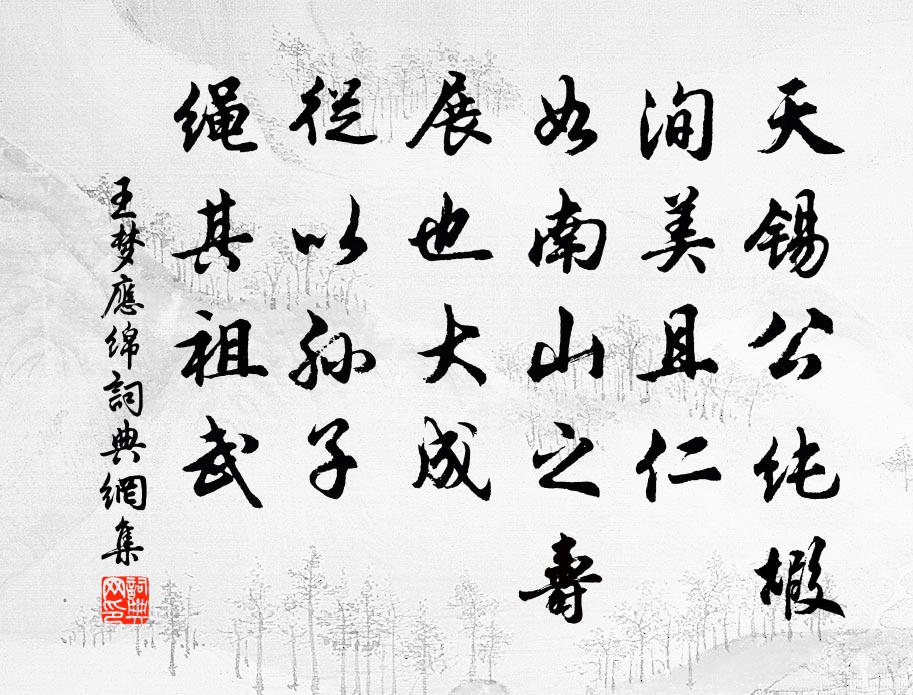 天锡公纯嘏
洵美且仁
如南山之寿
展也大成
從以孙子
绳其祖武
王梦應绵詞典網集
詞典网印